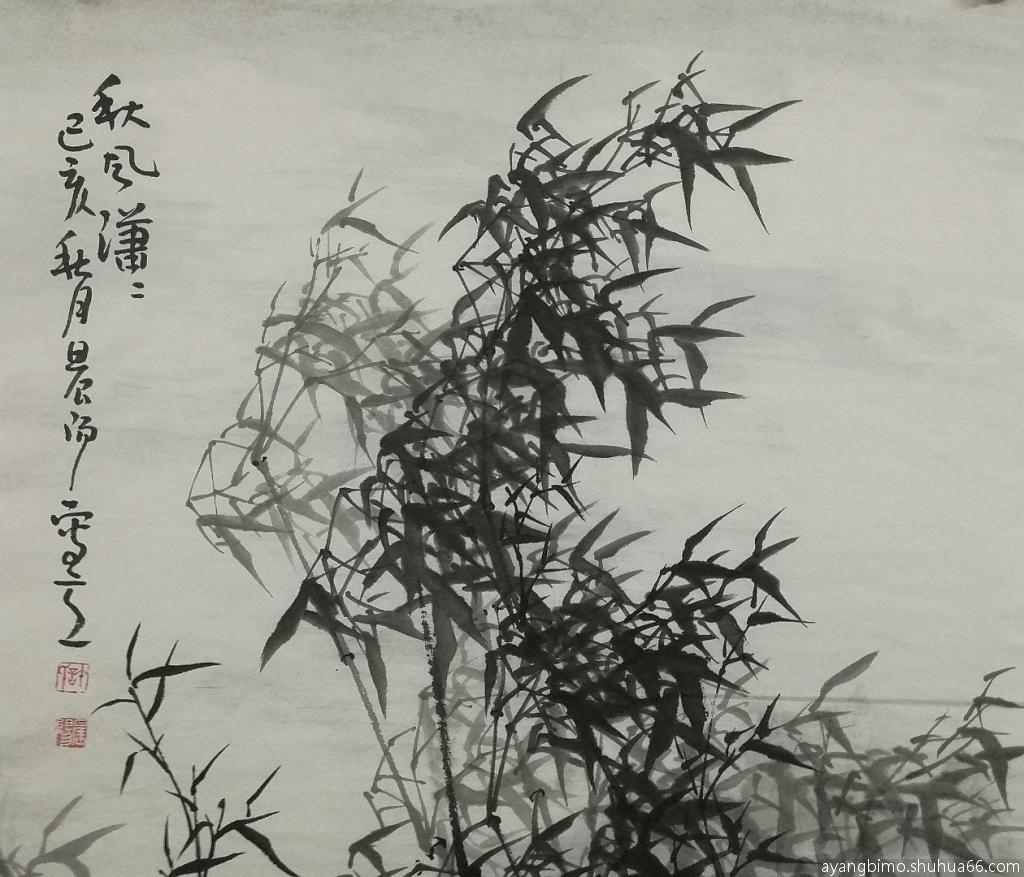 秋风潇〻
己亥秋月晨阳写之
ayangbimo.shuhua66.com